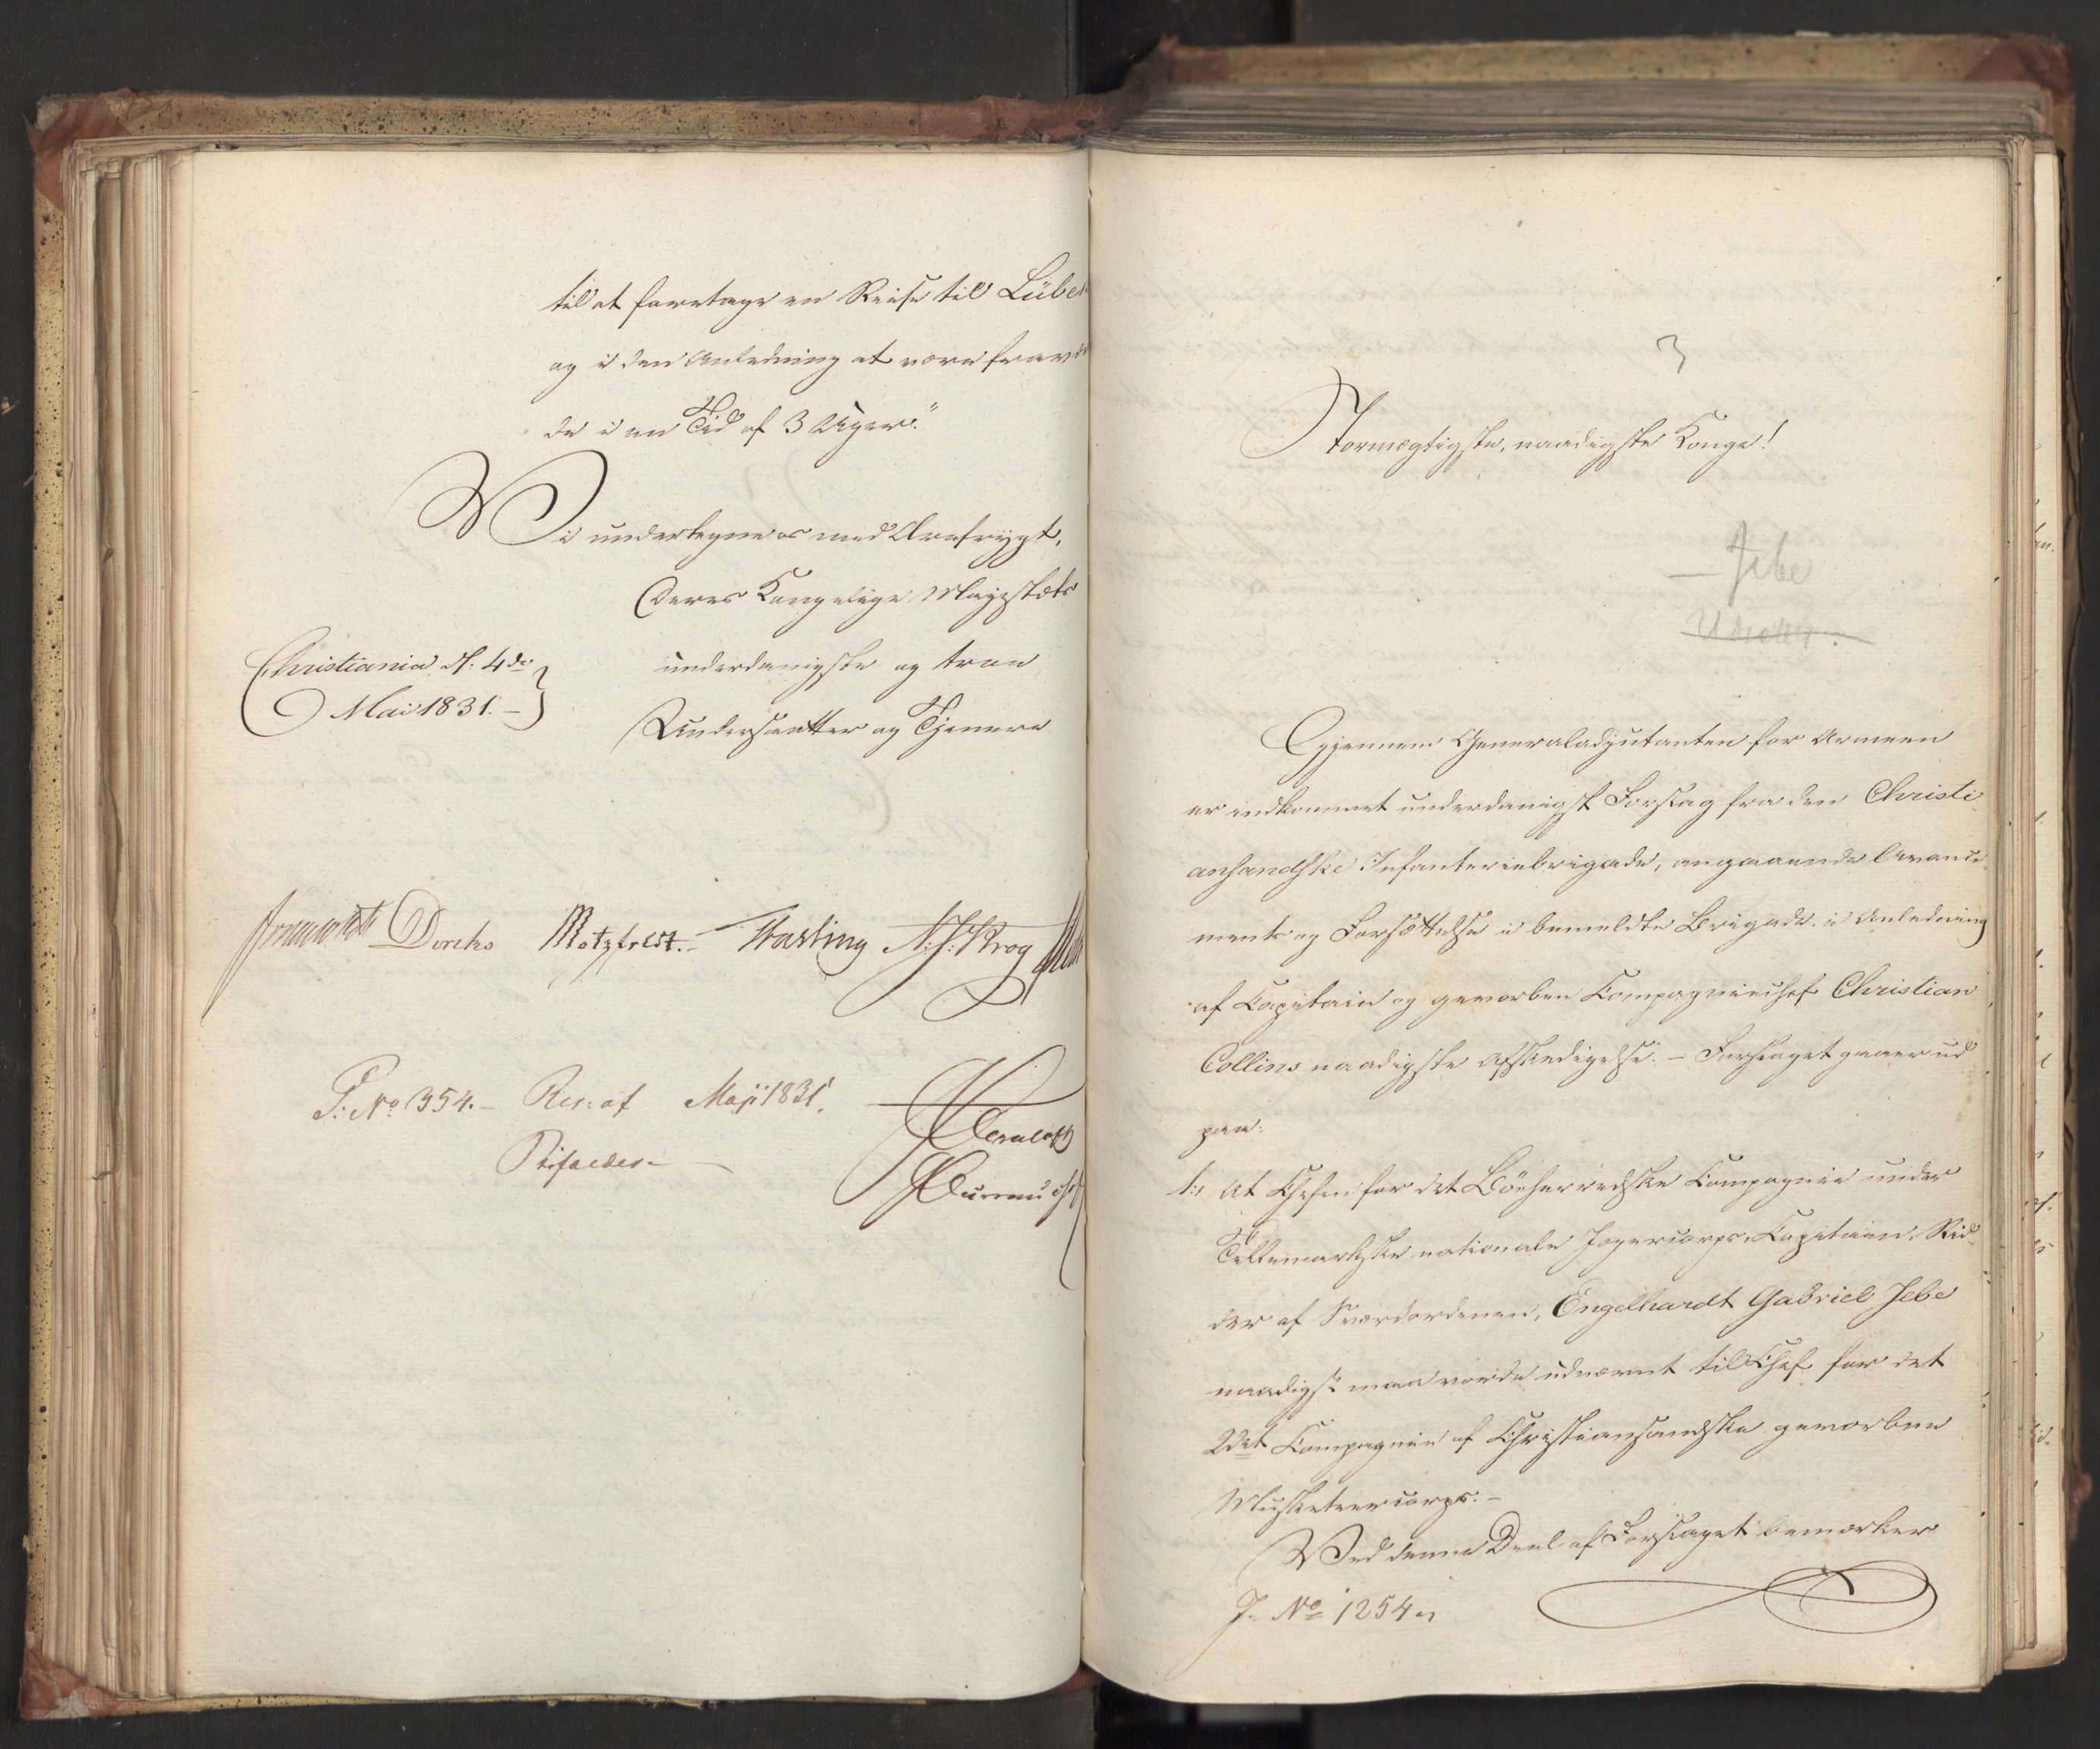 til at foretage en Reise til Lübek
og i den Anledning at være fraværen
de i en Tid af 3 Uger."
Vi undertegne os med Ærefrygt,
Deres Kongelige Majestæts
underdanigste og troe
Undersaatter og Tjenere
Christiania d. 4de
Mai 1831.-
Diriks Motzfeldt.- Vasling N: J: Krog
P: No 354.- Res: af Maji 1831.
Bifaldes.-
3
Stormægtigste, naadigste Konge!
Jebe
Gjennem Generaladjutanten for Armeen
er indkommet underdanigst Forslag fra den Christi
ansandske Infanteriebrigade, angaaende Avance
ments og Forsættelse i bemeldte Brigade i Anledning
af Capitain og geworben Compagniechef Christian
Collins naadigste Afskedigelse.- Forslaget gaaer ud
paa:
1:, At Chefen for det Böeherredske Compagnie under
Tellemarkske nationale Jægercorps, Capitain, Rid
der af Sværdordenen, Engelhardt Gabriel Jebe
naadigst maa vorde udnævnt til Chef for det
2det Compagnie af Christiansandske geworbne
Musketeercorps.-
Ved denne Deel af Forslaget bemærker
J. No 1254